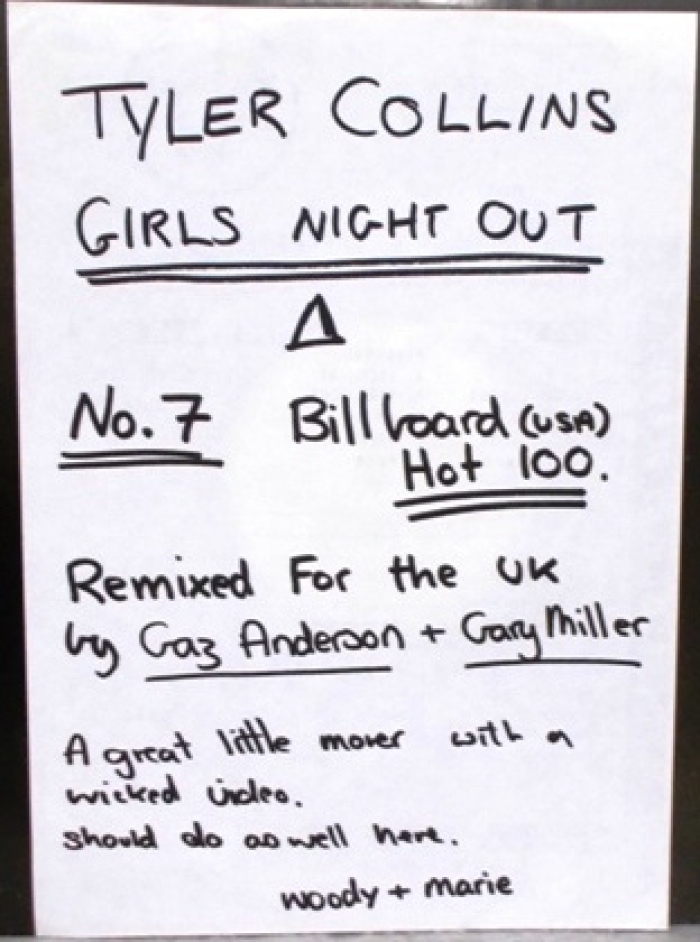 TYLER COLLINS
GIRLS NIGHT OUT
Δ
No. 7 Billboard (USA)
Hot 100.
Remixed For the UK
by Gaz Anderson + Gary Miller
A great little mover with a
wicked video.
should do as well here.
woody + marie